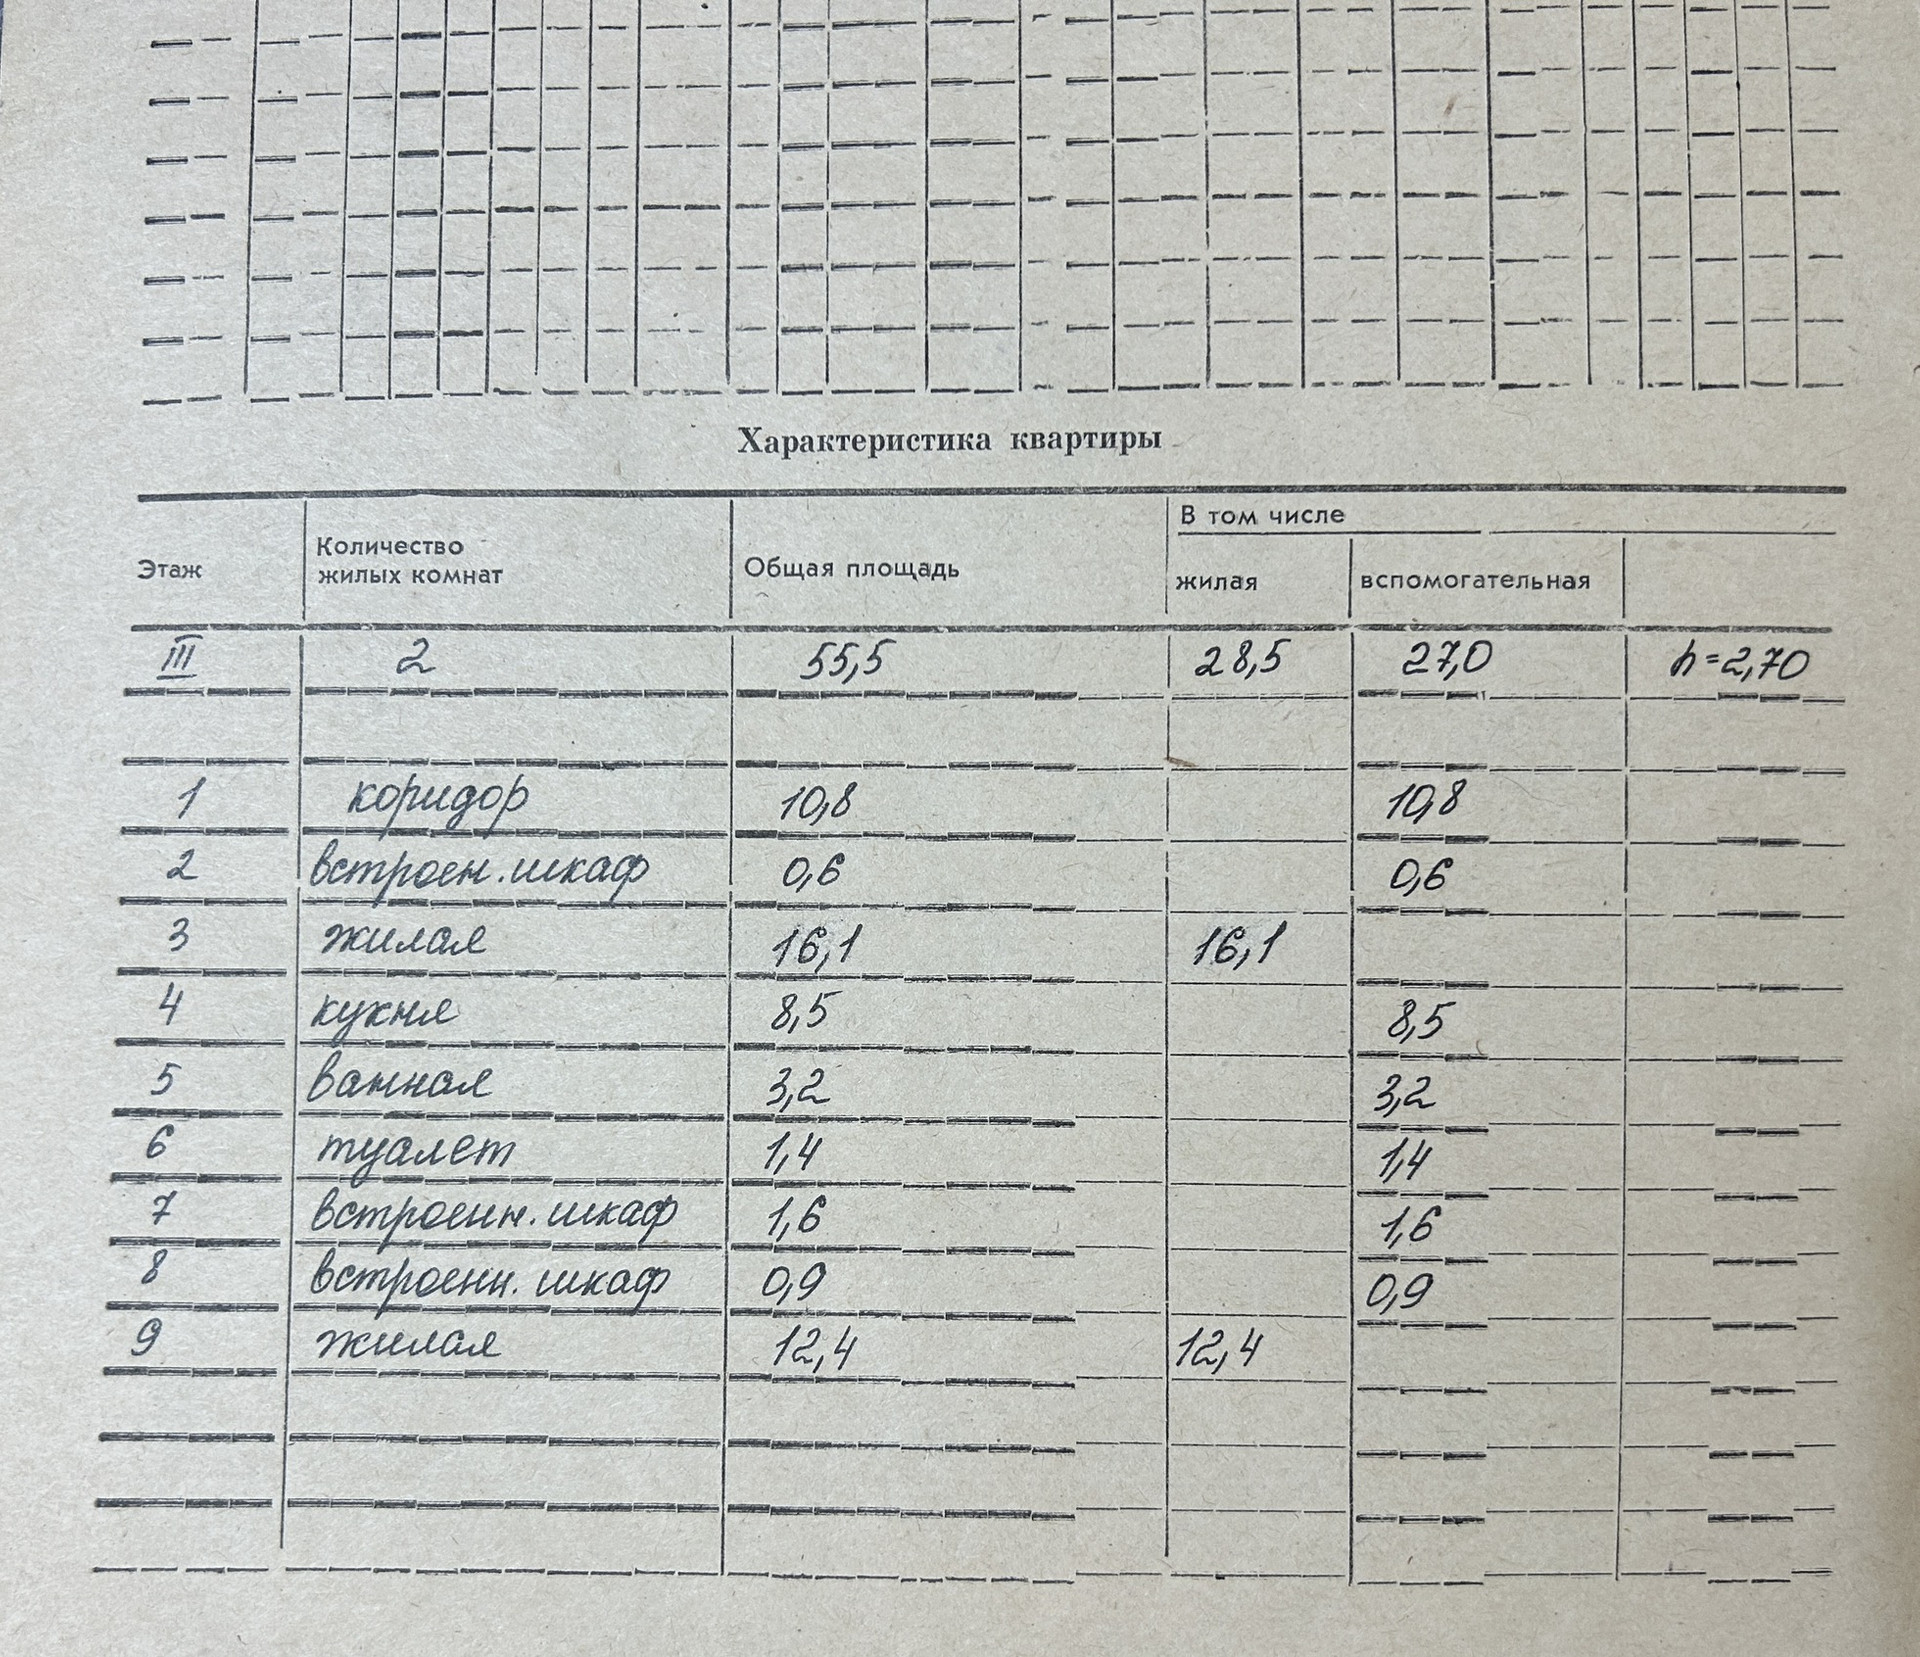 Характеристика квартиры
В том числе
Этаж Количество жилых комнат Общая площадь жилая вспомогательная
III 2 55,5 28,5 27,0 h=2,70
1 коридор 10,8 10,8
2 встроен. шкаф 0,6 0,6
3 жилая 16,1 16,1
4 кухня 8,5 8,5
5 ванная 3,2 3,2
6 туалет 1,4 1,4
7 встроенн. шкаф 1,6 1,6
8 встроенн. шкаф 0,9 0,9
9 жилая 12,4 12,4